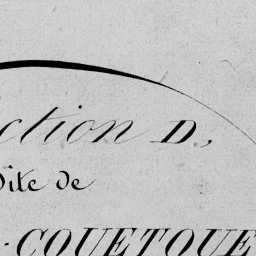 ction D,
Dite de
COUETOUE